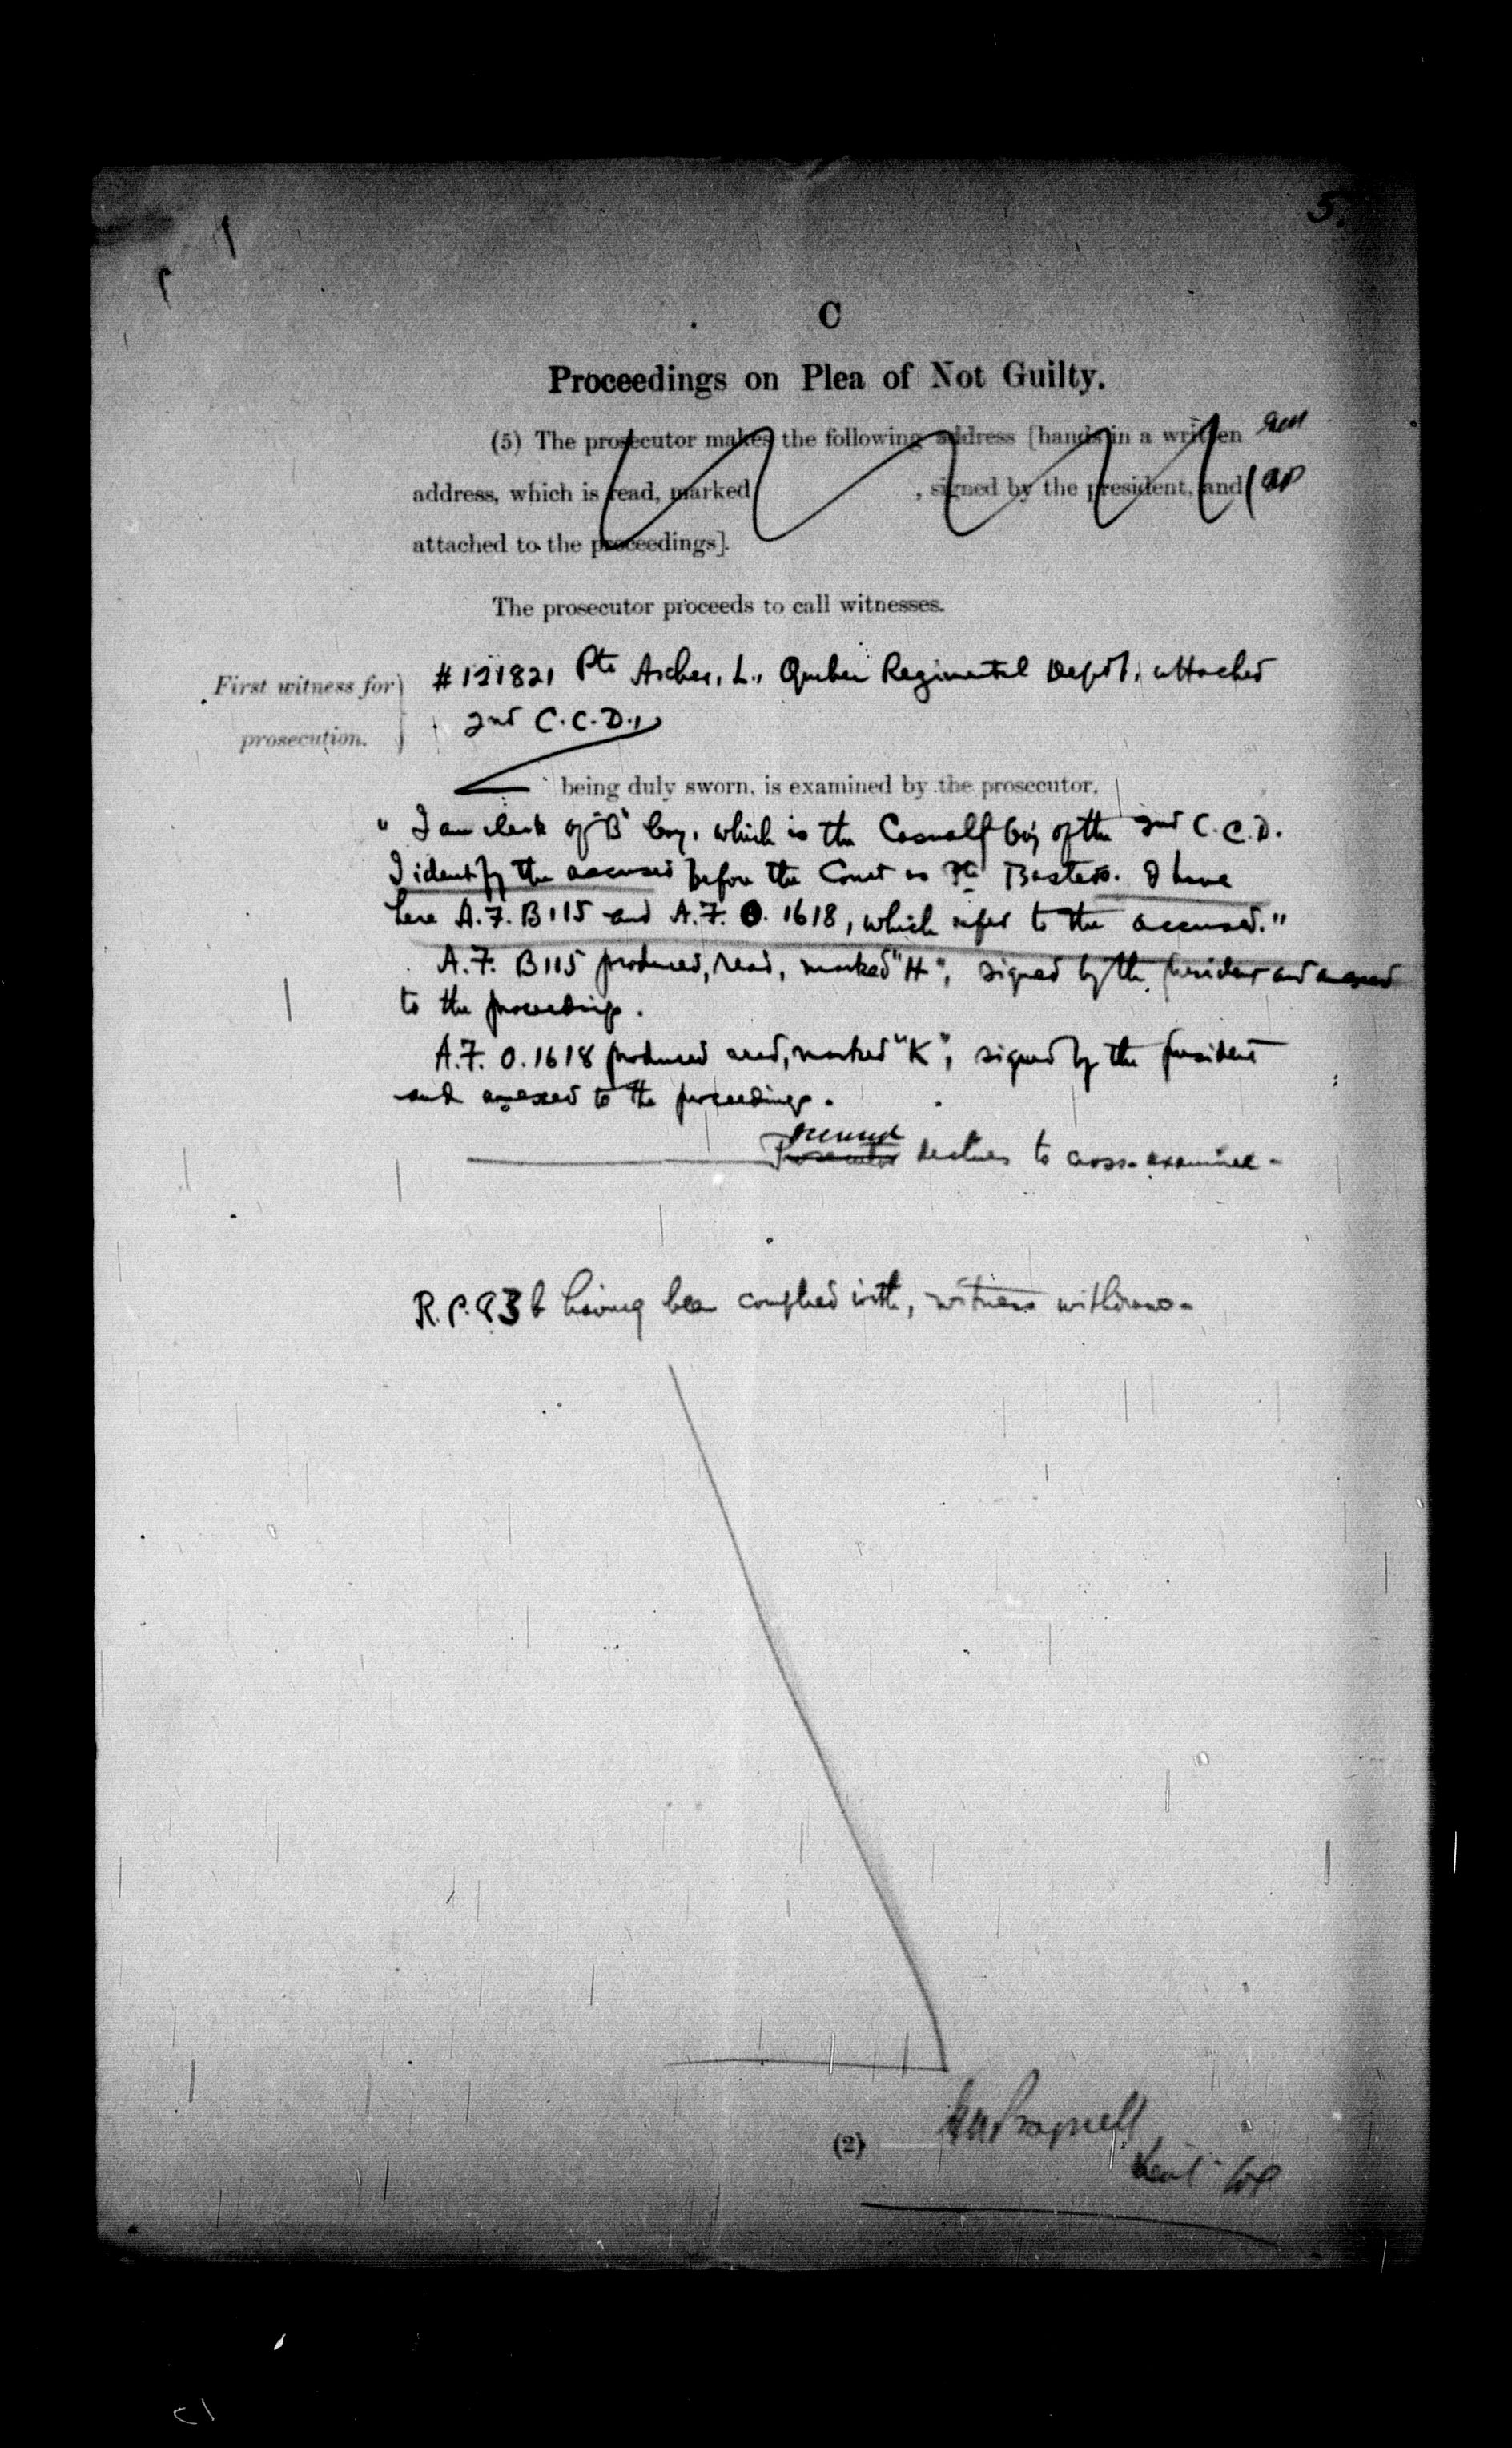 5.
C
Proceedings on Plea of Not Guilty.
(5) The prosecutor makes the following address [hands in a written
address, which is read, marked , signed by the president, and
attached to the proceedings].
The prosecutor proceeds to call witnesses.
First witness for prosecution.
#121821 Pte Archer, L., Quebec Regimental Depôt, attached
2nd C.C.D.,
being duly sworn, is examined by the prosecutor.
"I am clerk of "B" Coy, which is the Casualty Coy of the 2nd C.C.D.
I identify the accused before the Court as Pte Basters. I have
here A.F. B115 and A.F. O. 1618, which refer to the accused."
A.F. B115 produced, read, marked "H", signed by the president and annexed
to the proceedings.
A.F. O.1618 produced read, marked "K", signed by the president
and annexed to the proceedings.
accused
Prosecutor declines to cross-examine-
R.P. 83 b having been complied with, witness withdraws-
(2)